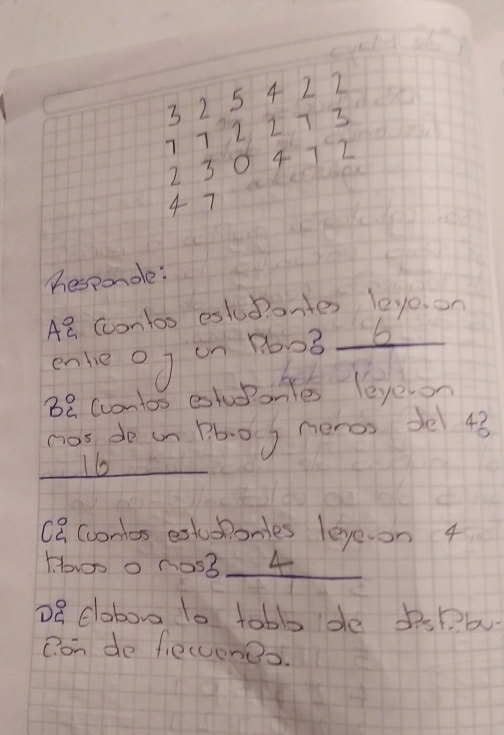 3 2 5 4 2 2
1 1 2 2 1 3
2 3 0 4 1 2
4 1
Responde:
A¿ Cuantos estudiantes leyeron
entre 0 y un libro? 6
B¿ Cuantos estudiantes leyeron
mas de un libro y menos del 4?
16
C¿ Cuantos estudiantes leyeron 4
libros o mas? 4
D¿ Elabora la tabla de distribu-
cion de frecuencia.